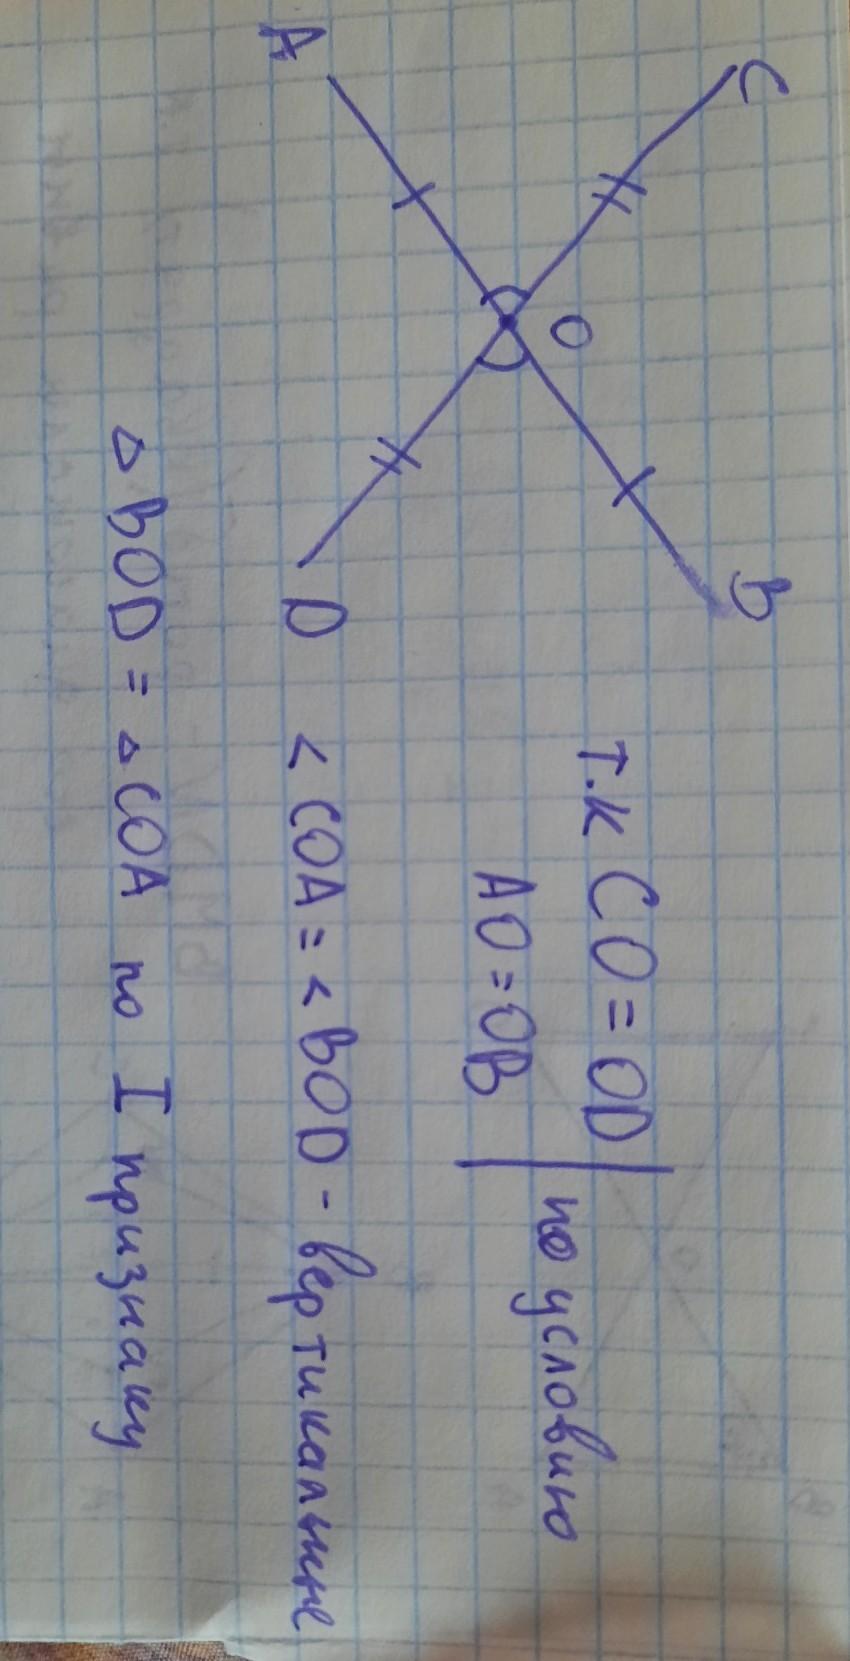 C
B
O
A
D
т.к CO = OD
AO = OB
по условию
< COA = < BOD - вертикальные
△ BOD = △ COA по I признаку